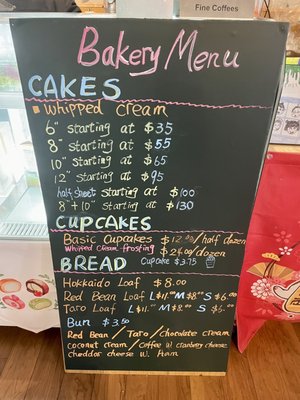 Fine Coffees
Bakery Menu
CAKES
whipped cream
6" starting at $35
8" starting at $55
10" starting at $65
12" starting at $95
half sheet starting at $100
8"+10" starting at $130
CUPCAKES
Basic Cupcakes $12.00/half dozen
Whipped Cream frosting $24.00/dozen
BREAD Cupcake $3.75
Hokkaido Loaf $8.00
Red Bean Loaf L$11.00 M$8.00 S $6.00
Taro Loaf L$11.00 M$8.00 S $6.00
Bun $3.50
Red Bean / Taro / chocolate cream
coconut cream / coffee w. cranberry cheese
cheddar cheese w. Ham